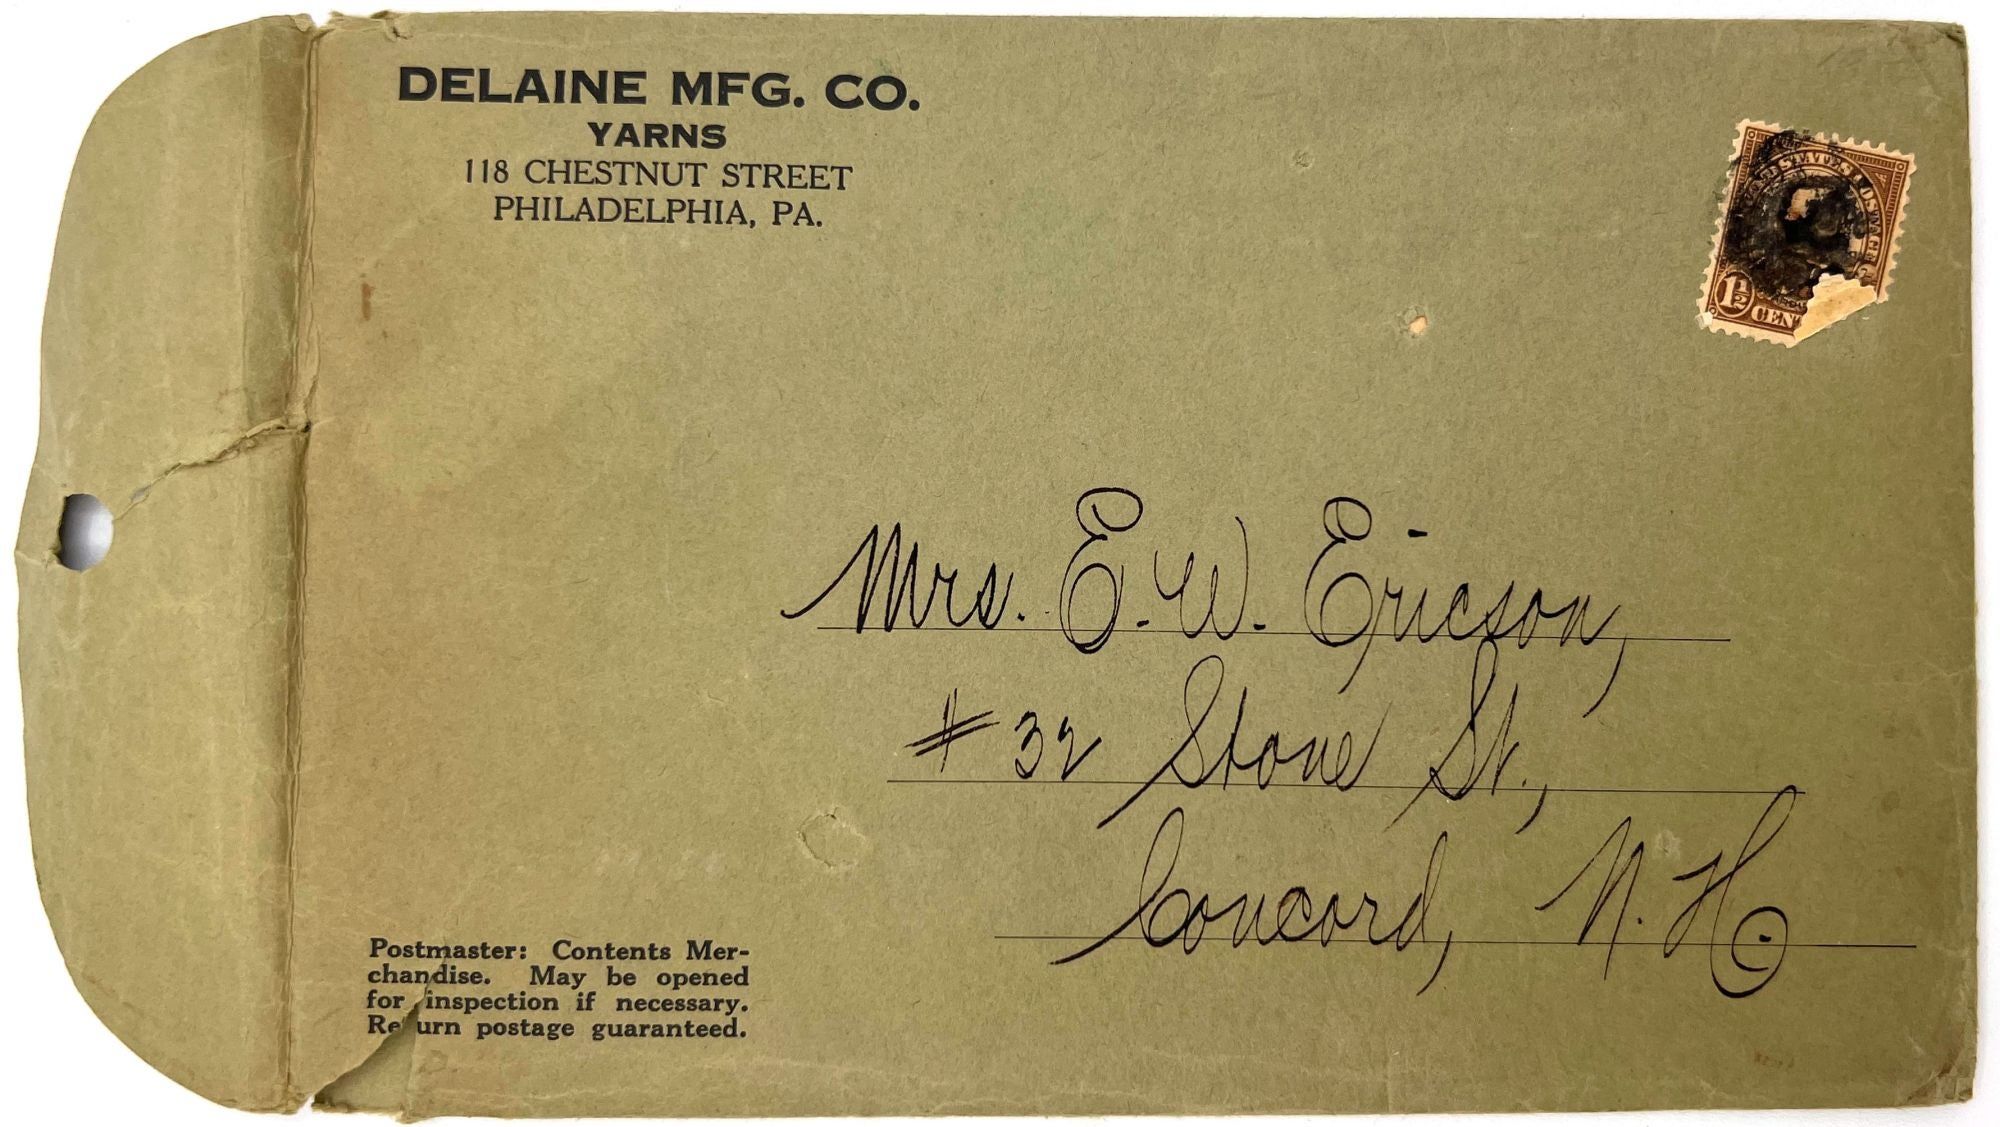 DELAINE MFG. CO.
YARNS
118 CHESTNUT STREET
PHILADELPHIA, PA.
1½ CEN
Mrs. E. W. Ericson,
#32 Stone St.,
Concord, N. H.
Postmaster: Contents Mer-
chandise. May be opened
for inspection if necessary.
Return postage guaranteed.